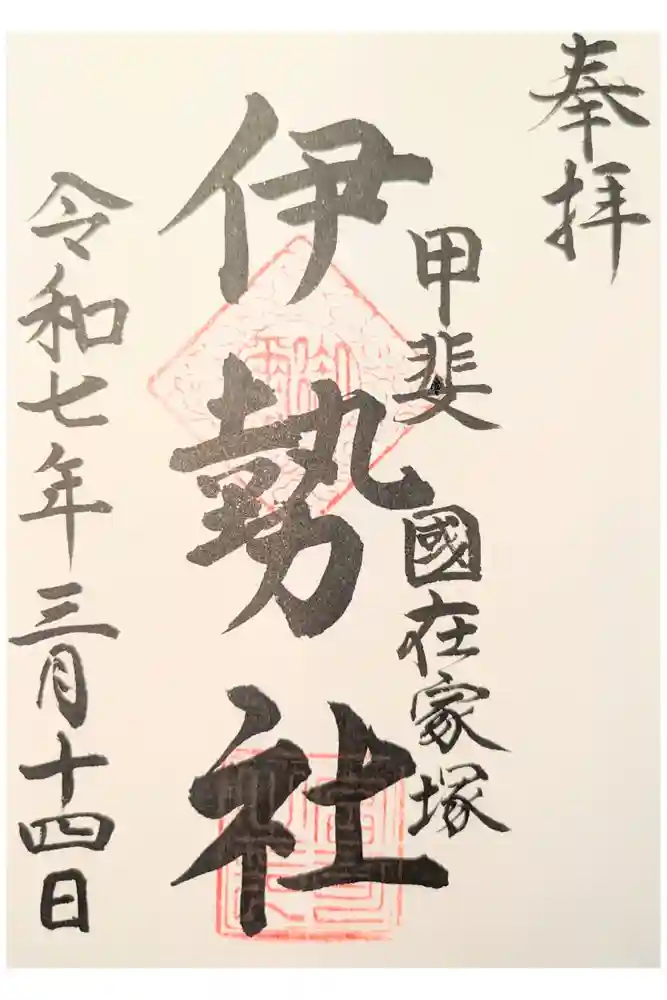 奉拝
甲斐國在家塚
伊勢社
令和七年三月十四日